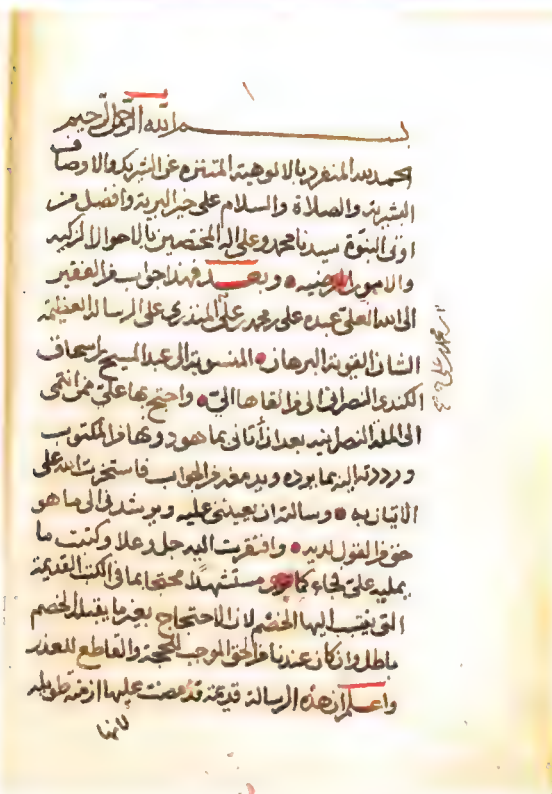 ١
بسم الله الرحمن الرحيم
الحمد لله المنفرد بالالوهية المتنزه عن الشريك والاوصاف
البشرية والصلاة والسلام على خير البرية وافضل من
اوتى النبوة سيدنا محمد وعلى اله المختصين بالاحوال الزكيه
والامور المرضيه وبعد فهذا جواب من الفقير
الى الله العلى عبده على محمد على المنذرى على الرسالة العظيمة
الشان القوية البرهان المنسوبة الى عبد المسيح بن اسحاق
الكندى النصرانى الذى القاها الى واحتج بها على ممن انتمى
الى الملة النصرانيه بعد ان أتانى بما هو دونها من المكتوب
ورددته اليه بما يرده ويدمغه من الجواب فاستخرت الله على
الاتيان به وسالته ان يعيننى عليه ويرشدنى الى ما هو
حق من القول لديه وافتقرت اليه جل وعلا وكتبت ما
يمليه على فجاء كما مستشهدا محتجا بما فى الكتب القديمة
التى ينتسب اليها الخصم لان الاحتجاج بغير ما يقبله الخصم
باطل وان كان عندنا من الحق الموجب للحجة والقاطع للعذر
واعلم ان هذه الرسالة قديمة قد مضت عليها ازمنة طويله